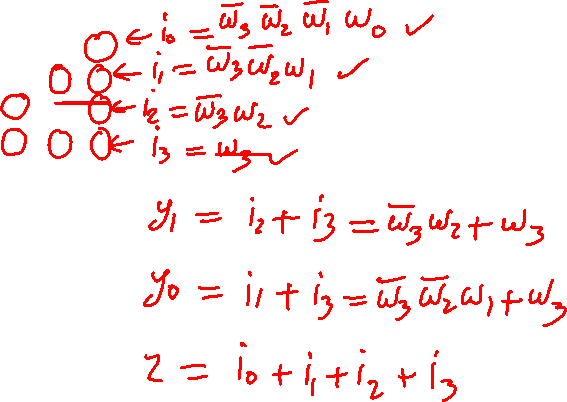 i₀ = w̅₃ w̅₂ w̅₁ w₀ ✓
i₁ = w̅₃ w̅₂ w₁ ✓
i₂ = w̅₃ w₂ ✓
i₃ = w₃ ✓
y₁ = i₂ + i₃ = w̅₃ w₂ + w₃
y₀ = i₁ + i₃ = w̅₃ w̅₂ w₁ + w₃
z = i₀ + i₁ + i₂ + i₃